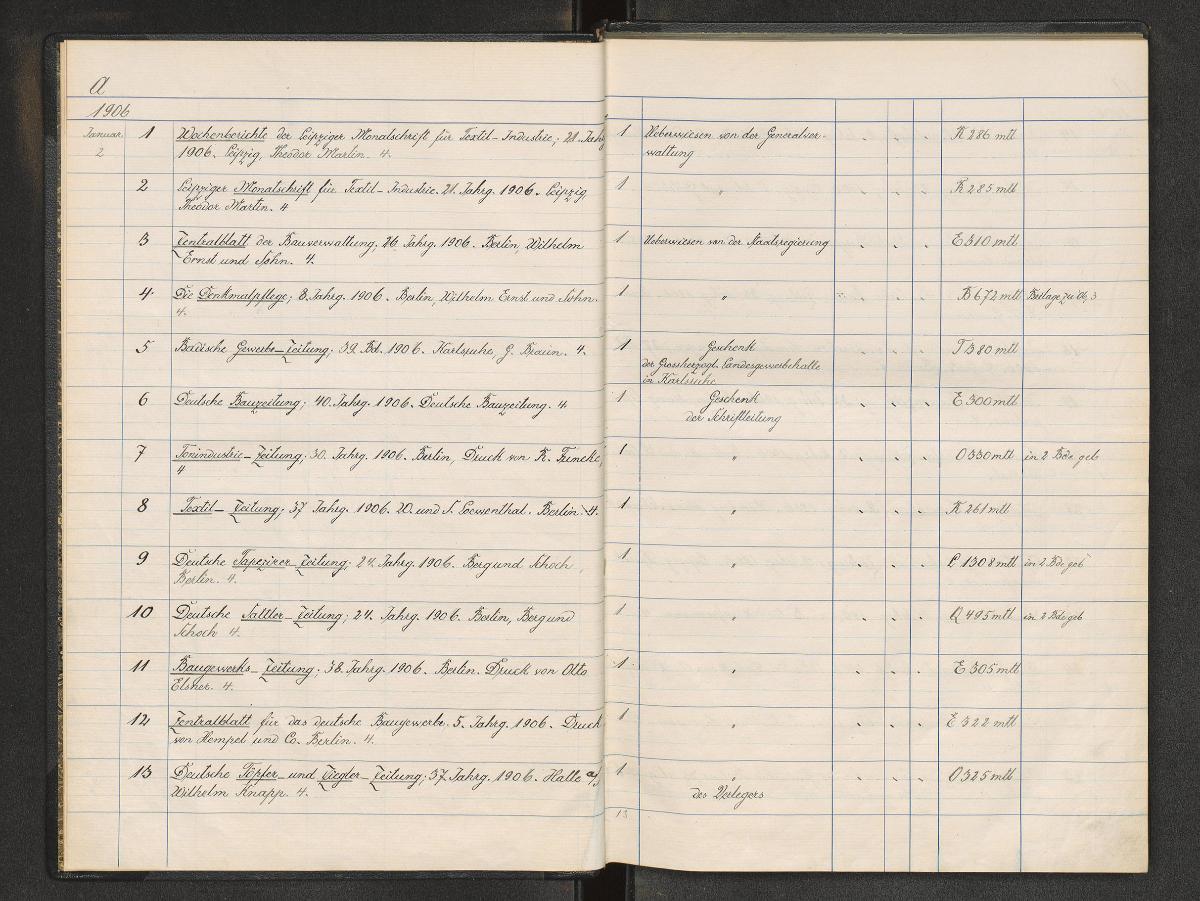 a
1906
Januar 1 Wochenberichte der Leipziger Monatschrift für Textil-Industrie; 21. Jahrg 1 Ueberwiesen von der Generalver- K 286 mtl
2 1906. Leipzig, Theodor Martin. 4. waltung
2 Leipziger Monatschrift für Textil-Industrie. 21. Jahrg. 1906. Leipzig, 1 " K 285 mtl
Theodor Martin. 4
3 Zentralblatt der Bauverwaltung, 26. Jahrg. 1906. Berlin, Wilhelm 1 Ueberwiesen von der Staatsregierung E 310 mtl
Ernst und Sohn. 4.
4 Die Denkmalpflege; 8. Jahrg. 1906. Berlin, Wilhelm Ernst und Sohn. 1 " B 672 mtl Beilage zu Nb. 3
4.
5 Badische Gewerbe-Zeitung; 39. Bd. 1906. Karlsruhe, G. Braun. 4. 1 Geschenk T 380 mtl
der Grossherzogl. Landesgewerbehalle
in Karlsruhe
6 Deutsche Bauzeitung; 40. Jahrg. 1906. Deutsche Bauzeitung. 4 1 Geschenk E 300 mtl
der Schriftleitung
7 Tonindustrie-Zeitung; 30. Jahrg. 1906. Berlin, Druck von R. 1 " O 330 mtl in 2 Bde. geb
4
8 Textil-Zeitung; 37 Jahrg. 1906. 20. und S. Loewenthal. Berlin 4. 1 " K 261 mtl
9 Deutsche Tapezirer-Zeitung; 24. Jahrg. 1906. Berg und Schoch, 1 " P 1308 mtl in 2 Bde geb
Berlin. 4.
10 Deutsche Sattler-Zeitung; 24. Jahrg. 1906. Berlin, Berg und 1 " Q 495 mtl in 2 Bde geb
Schoch 4.
11 Baugewerks-Zeitung; 38. Jahrg. 1906. Berlin. Druck von Otto 1 " E 305 mtl
Elsner. 4.
12 Zentralblatt für das deutsche Baugewerbe. 5. Jahrg. 1906. Druck 1 " E 322 mtl
von Hempel und Co. Berlin. 4.
13 Deutsche Töpfer- und Ziegler-Zeitung; 37. Jahrg. 1906. Halle a/S 1 " O 325 mtl
Wilhelm Knapp. 4. des Verlegers
13